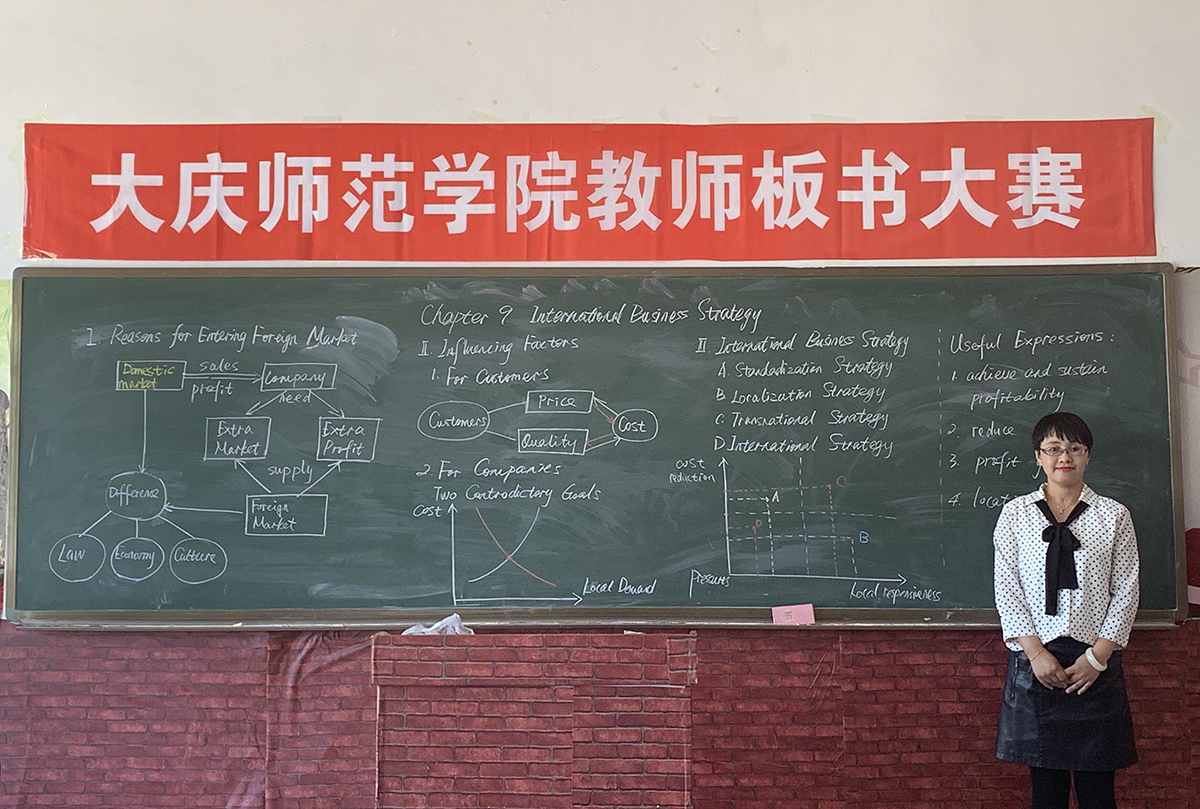 大庆师范学院教师板书大赛
Chapter 9 International Business Strategy
I. Reasons for Entering Foreign Market
Domestic
market
sales
profit
Company
need
Extra
Market
Extra
Profit
supply
Foreign
Market
Difference
Law
Economy
Culture
II. Influencing Factors
1. For Customers
Customers
Price
Quality
Cost
2. For Companies
Two Contradictory Goals
Cost
Local Demand
International Business Strategy
A. Standadization Strategy
B Localization Strategy
C. Transnational Strategy
D International Strategy
cost
reduction
A
C
D
B
Pressures
Local responsiveness
Useful Expressions:
1. achieve and sustain
profitability
2. reduce
3. profit
4.